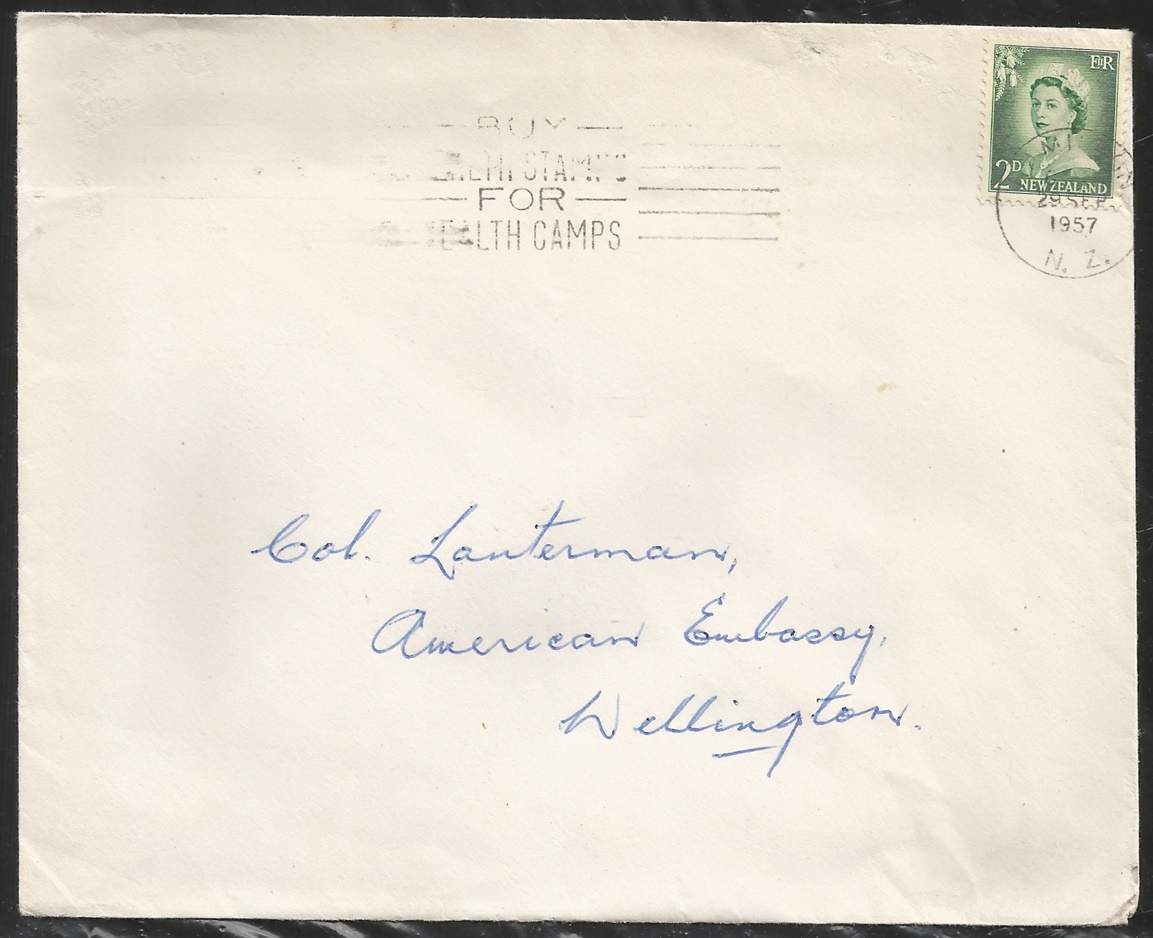 BUY
FOR
HEALTH CAMPS
E II R
2D
NEW ZEALAND
29 SEP
1957
N. Z.
Col. Lanterman,
American Embassy,
Wellington.